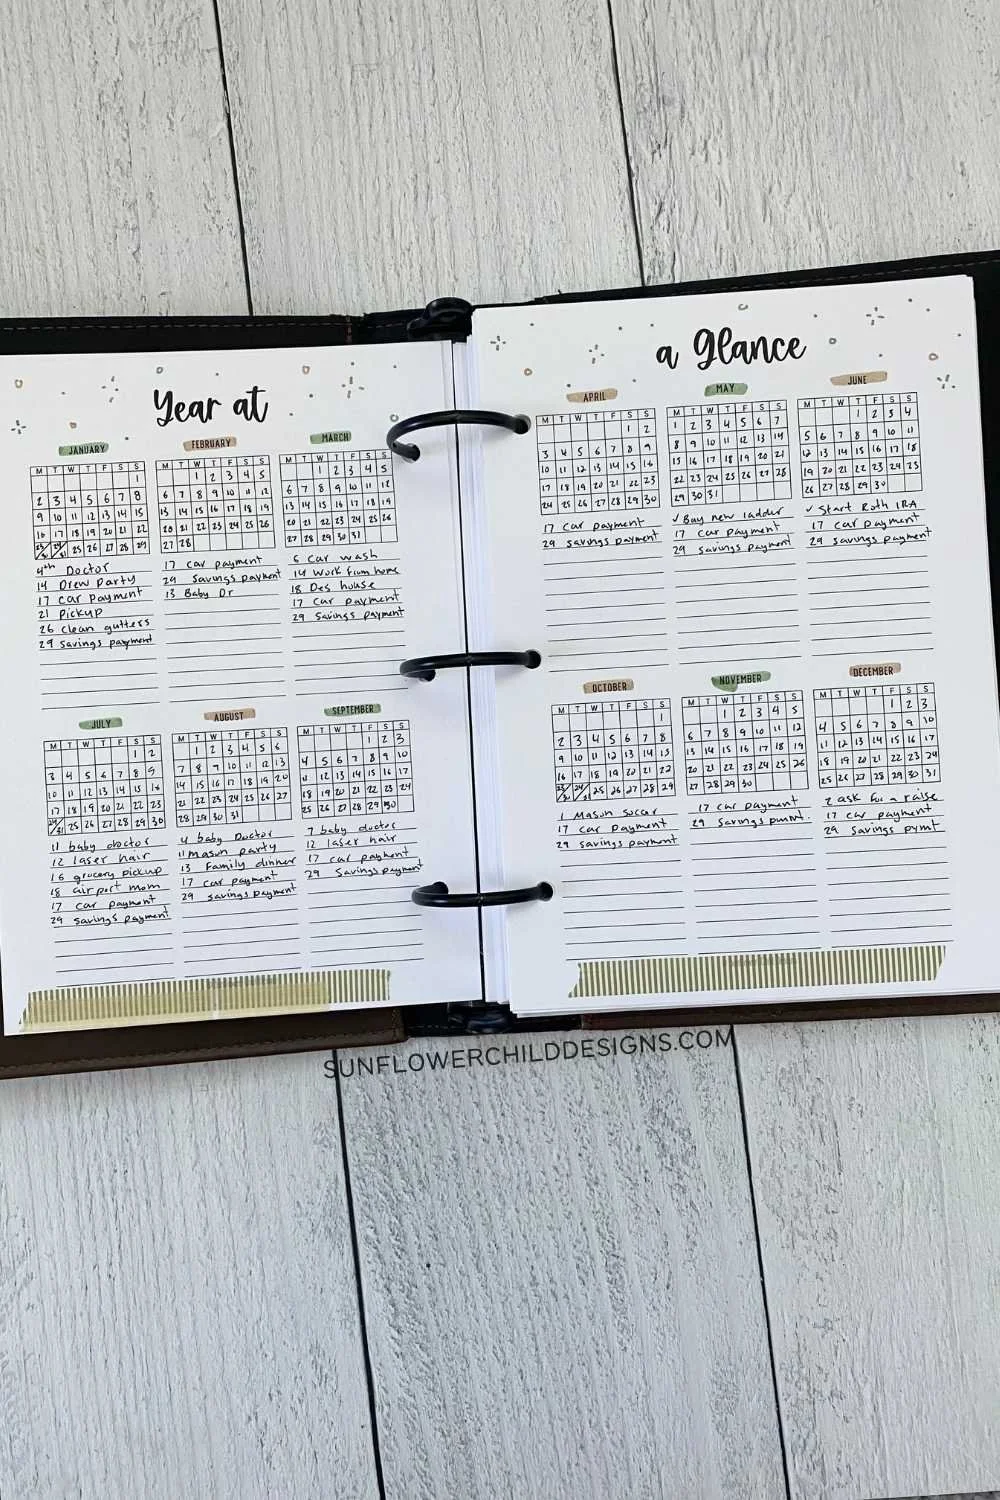 Year at
JANUARY
M T W T F S S
1
2 3 4 5 6 7 8
9 10 11 12 13 14 15
16 17 18 19 20 21 22
25 26 27 28 29
4th Doctor
14 Drew Party
17 Car payment
21 Pickup
26 clean gutters
29 savings payment
FEBRUARY
M T W T F S S
1 2 3 4 5
6 7 8 9 10 11 12
13 14 15 16 17 18 19
20 21 22 23 24 25 26
27 28
17 car payment
29 savings payment
13 Baby Dr
MARCH
M T W T F S S
1 2 3 4 5
6 7 8 9 10 11 12
13 14 15 16 17 18 19
20 21 22 23 24 25 26
27 28 29 30 31
6 Car wash
14 Work from home
18 Des house
17 Car payment
29 savings payment
JULY
M T W T F S S
1 2
3 4 5 6 7 8 9
10 11 12 13 14 15 16
17 18 19 20 21 22 23
24/31 25 26 27 28 29 30
11 baby doctor
12 laser hair
16 grocery pickup
18 airport mom
17 car payment
29 savings payment
AUGUST
M T W T F S S
1 2 3 4 5 6
7 8 9 10 11 12 13
14 15 16 17 18 19 20
21 22 23 24 25 26 27
28 29 30 31
4 baby Doctor
11 mason party
13 Family dinner
17 car payment
29 savings payment
SEPTEMBER
M T W T F S S
1 2 3
4 5 6 7 8 9 10
11 12 13 14 15 16 17
18 19 20 21 22 23 24
25 26 27 28 29 30
7 baby doctor
12 laser hair
17 car payment
29 Savings payment
a Glance
APRIL
M T W T F S S
1 2
3 4 5 6 7 8 9
10 11 12 13 14 15 16
17 18 19 20 21 22 23
24 25 26 27 28 29 30
17 car payment
29 savings payment
MAY
M T W T F S S
1 2 3 4 5 6 7
8 9 10 11 12 13 14
15 16 17 18 19 20 21
22 23 24 25 26 27 28
29 30 31
✓ Buy new ladder
17 car payment
29 savings payment
JUNE
M T W T F S S
1 2 3 4
5 6 7 8 9 10 11
12 13 14 15 16 17 18
19 20 21 22 23 24 25
26 27 28 29 30
✓ Start Roth IRA
17 car payment
29 savings payment
OCTOBER
M T W T F S S
1
2 3 4 5 6 7 8
9 10 11 12 13 14 15
16 17 18 19 20 21 22
23/30 24/31 25 26 27 28 29
1 Mason socar
17 car payment
29 savings payment
NOVEMBER
M T W T F S S
1 2 3 4 5
6 7 8 9 10 11 12
13 14 15 16 17 18 19
20 21 22 23 24 25 26
27 28 29 30
17 car payment
29 savings pymnt.
DECEMBER
M T W T F S S
1 2 3
4 5 6 7 8 9 10
11 12 13 14 15 16 17
18 19 20 21 22 23 24
25 26 27 28 29 30 31
2 ask for a raise
17 car payment
29 savings pymt
SUNFLOWERCHILDDESIGNS.COM